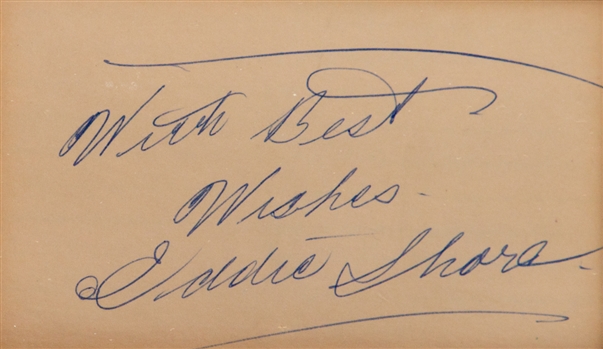 With Best
Wishes.
Eddie Shore.